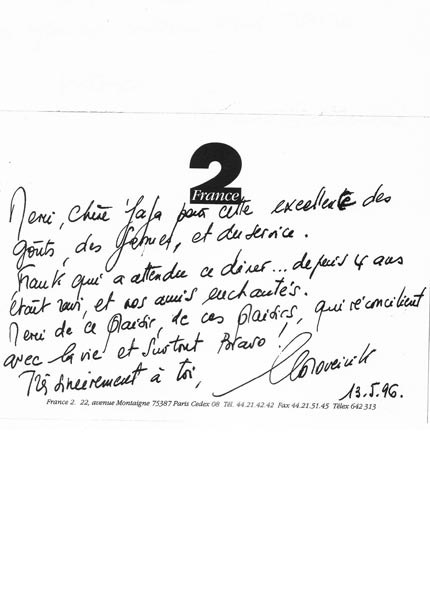 2
France
Merci, chère Fafa pour cette excellente des
goûts, des , et du service.
Frank qui a attendu ce dîner... depuis 4 ans
était ravi, et nos amis enchantés.
Merci de ce plaisir, de ces plaisirs, qui réconcilient
avec la vie et surtout Bravo !
Très sincèrement à toi,
13.5.96.
France 2. 22, avenue Montaigne 75387 Paris Cedex 08 Tél. 44.21.42.42 Fax 44.21.51.45 Télex 642 313